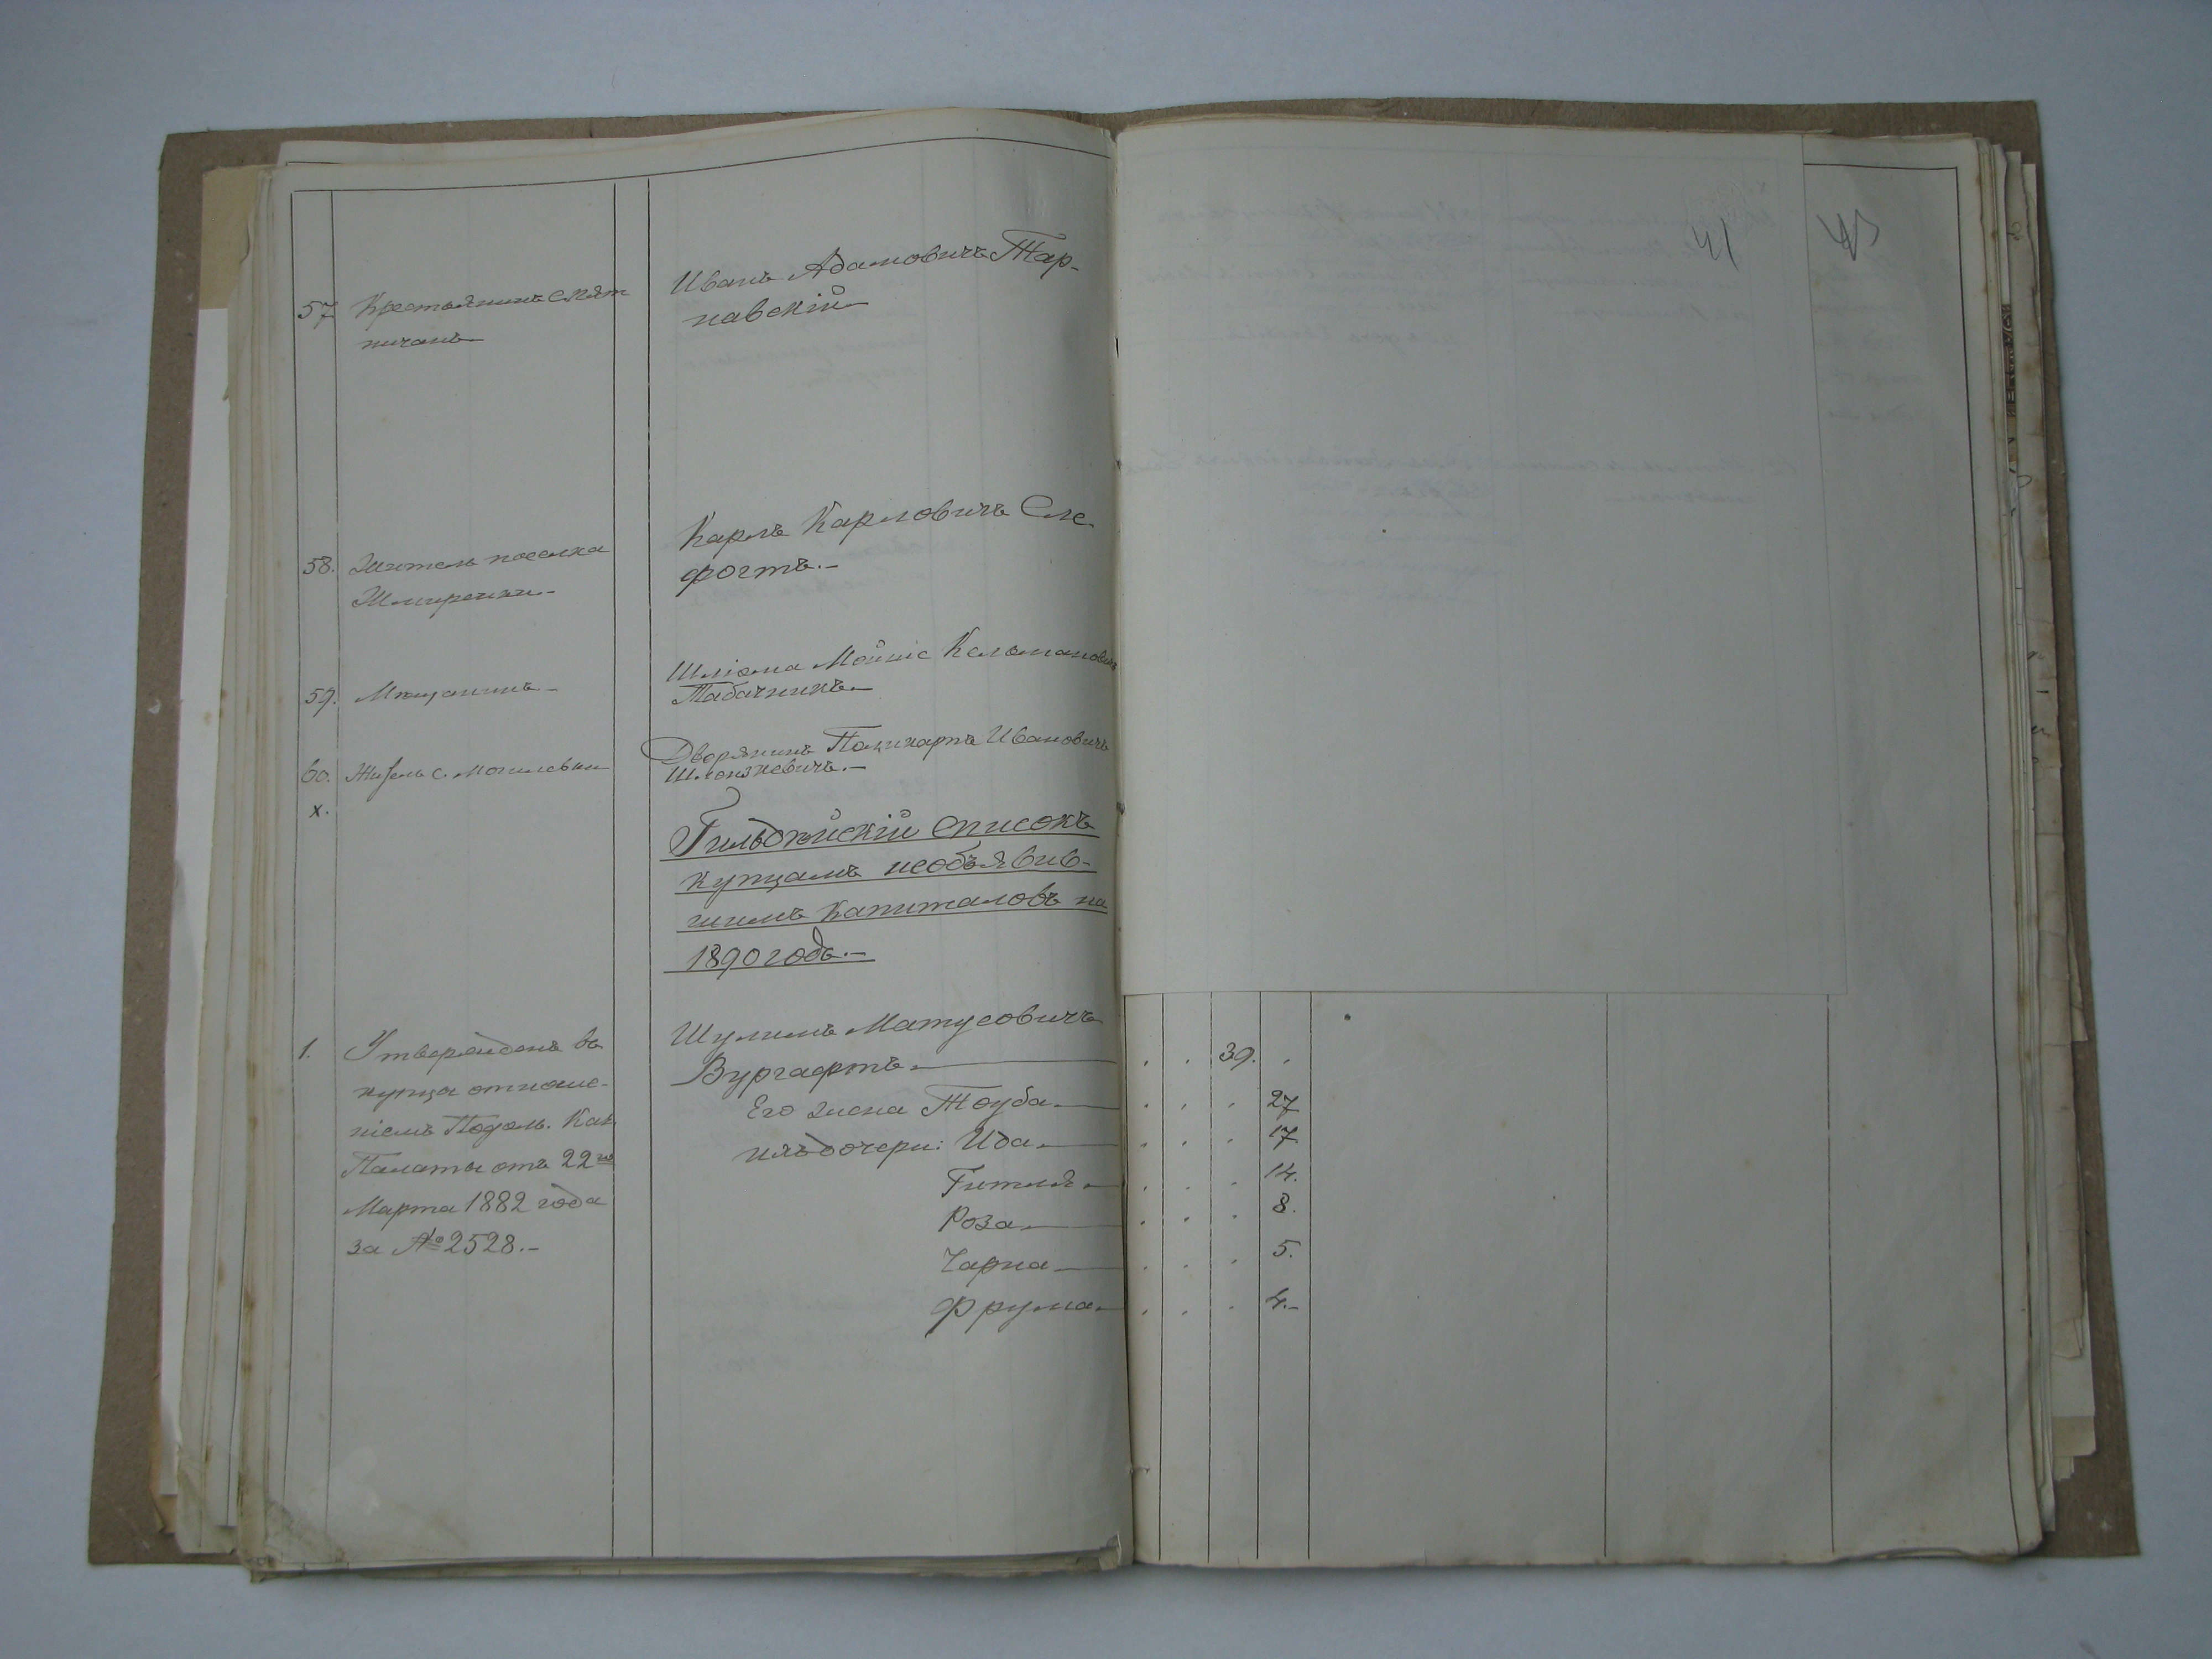 41
43
57 Крестьянинъ с. Пят
ничанъ
Иванъ Адамовичъ Тар-
навскій
58. Житель поселка
Жмиренки.-
Карлъ Карловичъ Сле-
фогтъ.-
59. Мѣщанинъ-
Шліома Мойше Кельмановичъ
Табачникъ.-
60. Житель с. Могилевки
х.
Дворянинъ Поликарпъ Ивановичъ
Гильдѣйскій списокъ
купцамъ необъявив-
шимъ капиталовъ на
1890 годъ.-
1. Утвержденъ въ
купца отноше-
ніемъ Подол. Каз.
Палаты отъ 22го
Марта 1882 года
за № 2528.-
Шулимъ Матусовичъ
Вургафтъ. 39.
Его жена Тоуба. 27
ихъ дочери: Ида. 17
Гитля. 14.
Роза. 8.
Чарна 5.
Фрума. 4.-